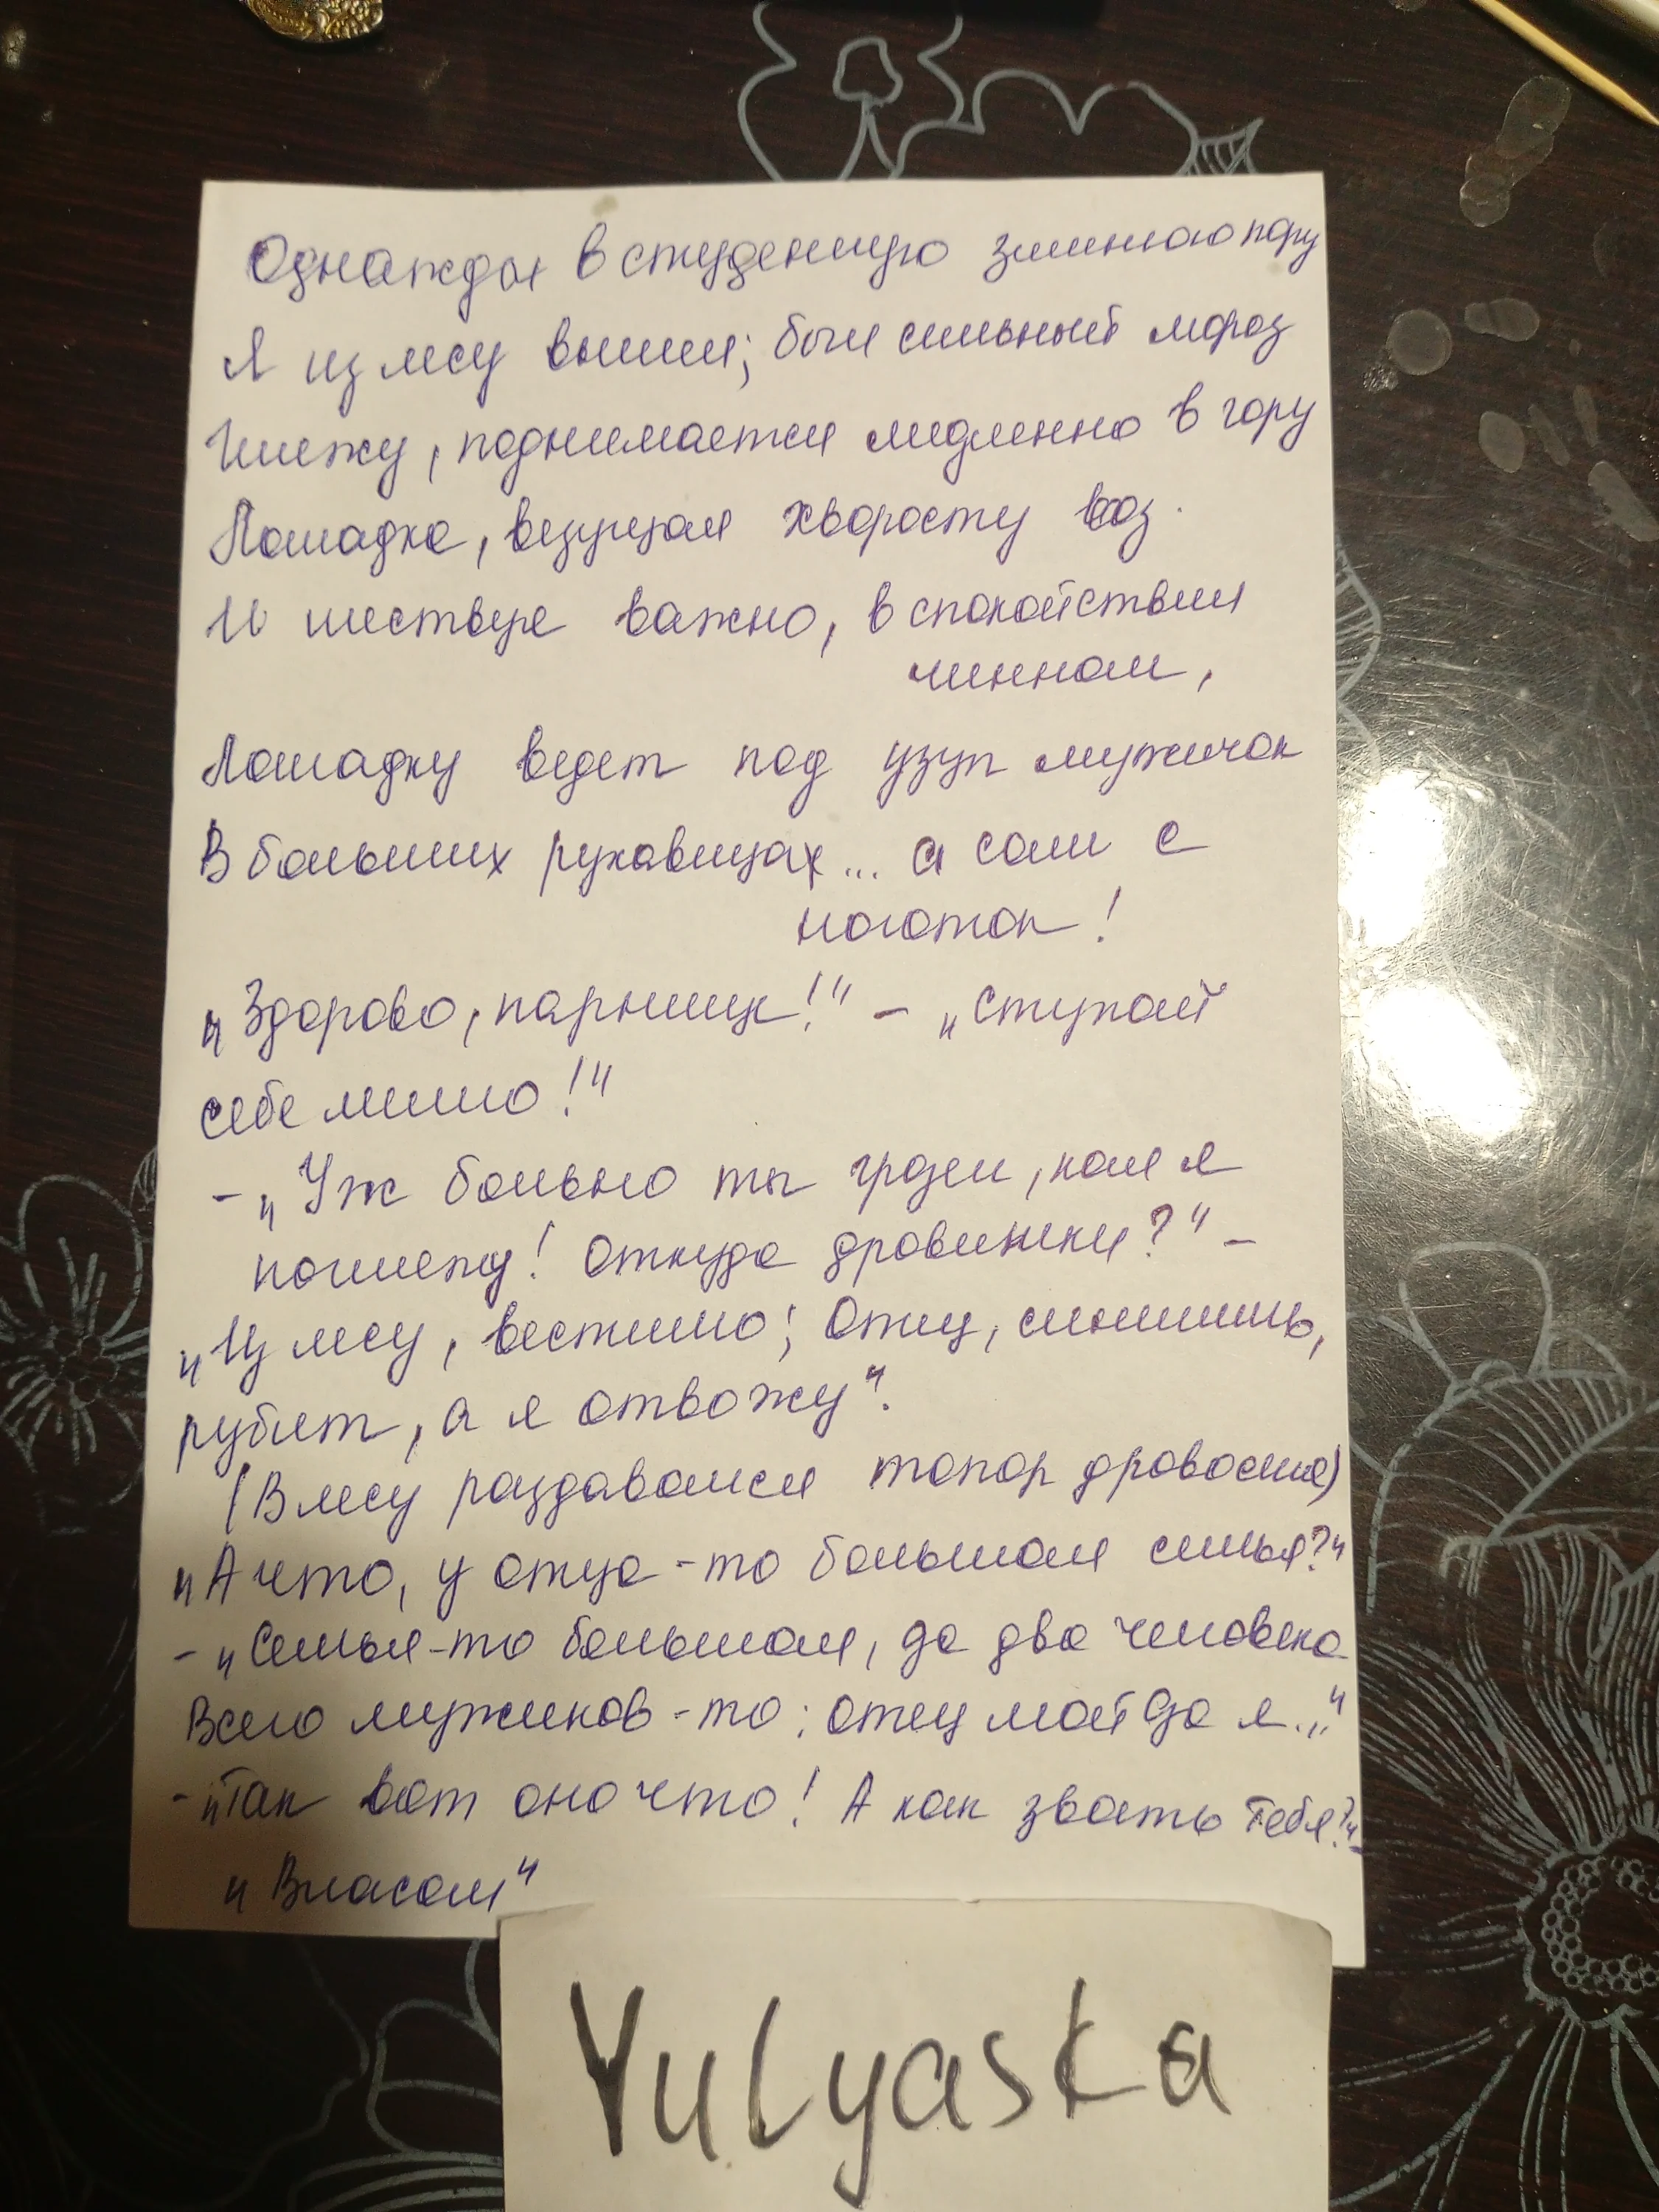 Однажды в студенную зимнюю пору
Я из лесу вышел; был сильный мороз
Гляжу, поднимается медленно в гору
Лошадка, везущая хворосту воз.
И шествуе важно, в спокойствии
чинном,
Лошадку ведет под узуп мужичок
В больших рукавицах... а сам с
ноготок!
„Здорово, парнище!" – „Ступай
себе мимо!"
– „Уж больно ты грозен, как я
погляжу! Откуда дровишки?" –
„Из лесу, вестимо; Отец, слышишь,
рубит, а я отвожу".
(В лесу раздавался топор дровосека)
„А что, у отца-то большая семья?"
– „Семья-то большая, да два человека
Всего мужиков-то: отец мой да я..."
– „Так вот оно что! А как звать тебя?" –
„Власом"
Yulyaska